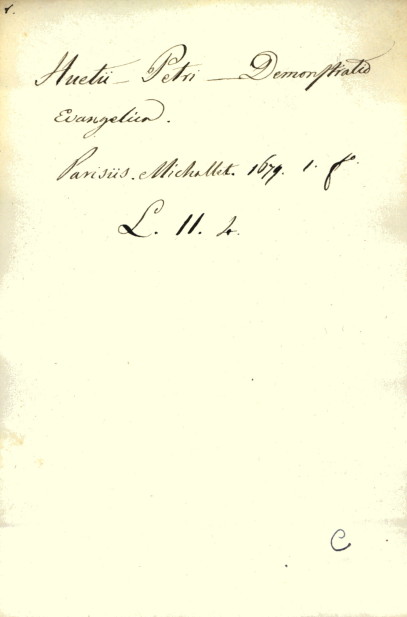 Huetii - Petri - Demonstratio
Evangelica.
Parisiis. Michallet. 1679. 1. f.º
L. 11. 4.
C